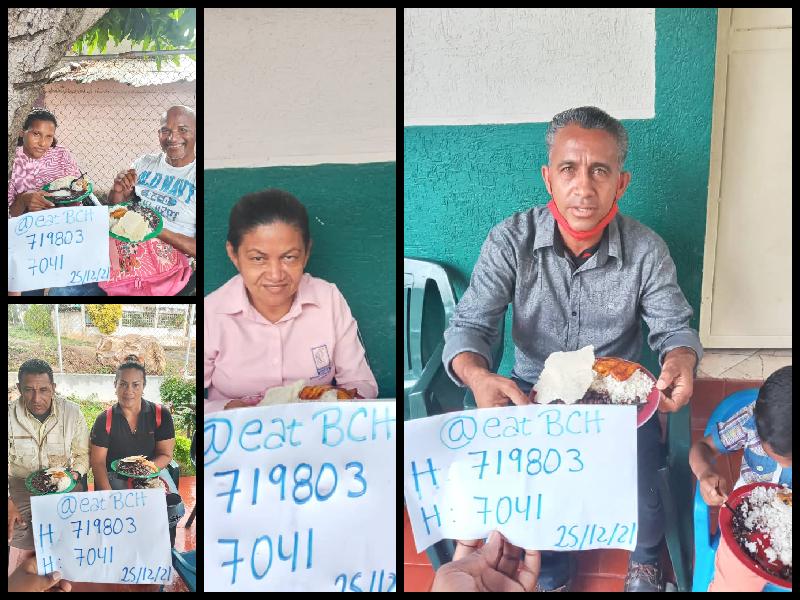 OLD NAVY
@eat BCH
719803
7041
25/12/21
@eat BCH
H: 719803
H: 7041
25/12/21
@eat BCH
719803
7041
25/12
@eat BCH
H: 719803
H: 7041
25/12/21